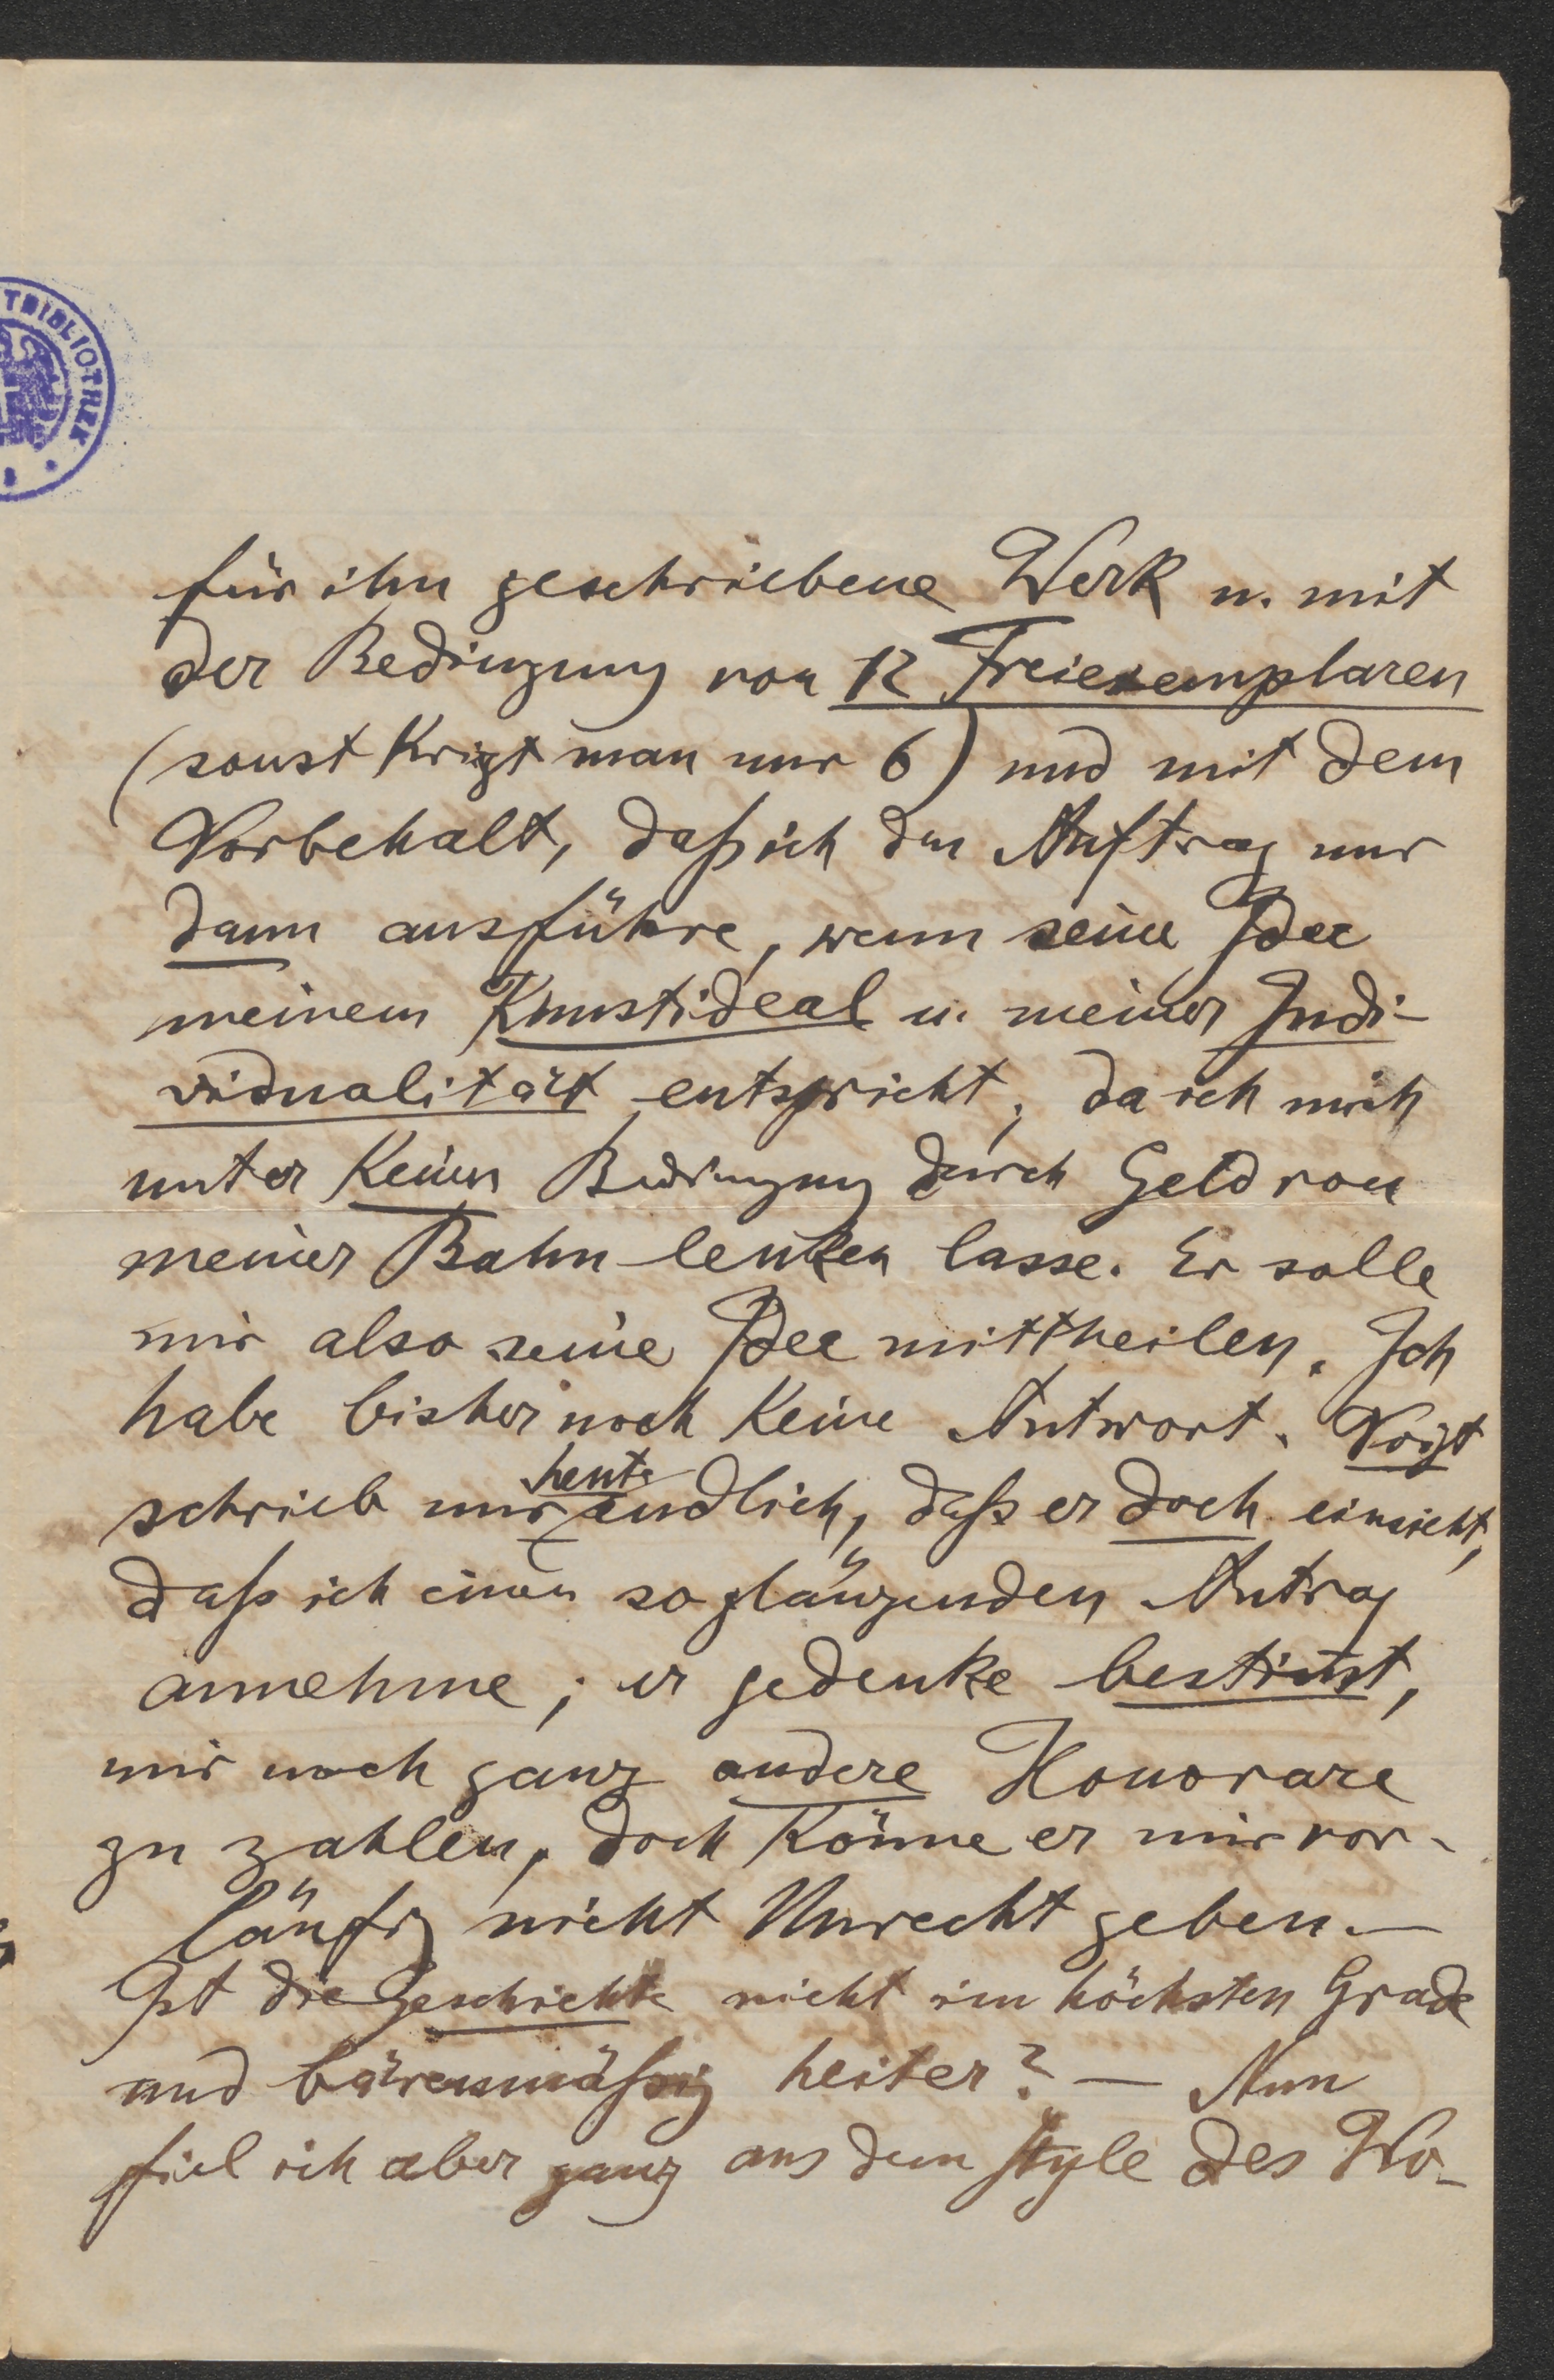 TBIBLIOTHEK
für ihn geschriebene Werk u. mit
der Bedingung von 12 Freiexemplaren
(sonst krigt man nur 6) und mit dem
Vorbehalt, daß ich den Auftrag nur
dann ausführe, wenn seine Idee
meinem Kunstideal u. meiner Indi-
vidualität entspricht, da ich mich
unter keiner Bedingung durch Geld von
meiner Bahn lenken lasse. Er solle
mir also seine Idee mittheilen. Ich
habe bisher noch keine Antwort. Voigt
schrieb mir heute endlich, daß er doch einsieht,
daß ich einen so glänzenden Antrag
annehme; er gedenke bestim̄t,
mir noch ganz andere Honorare
zu zahlen, doch könne er mir vor-
läufig nicht Unrecht geben.—
Ist die Geschichte nicht im höchsten Grade
und bärenmäßig heiter? — Nun
fiel ich aber ganz aus dem Style des Wo-